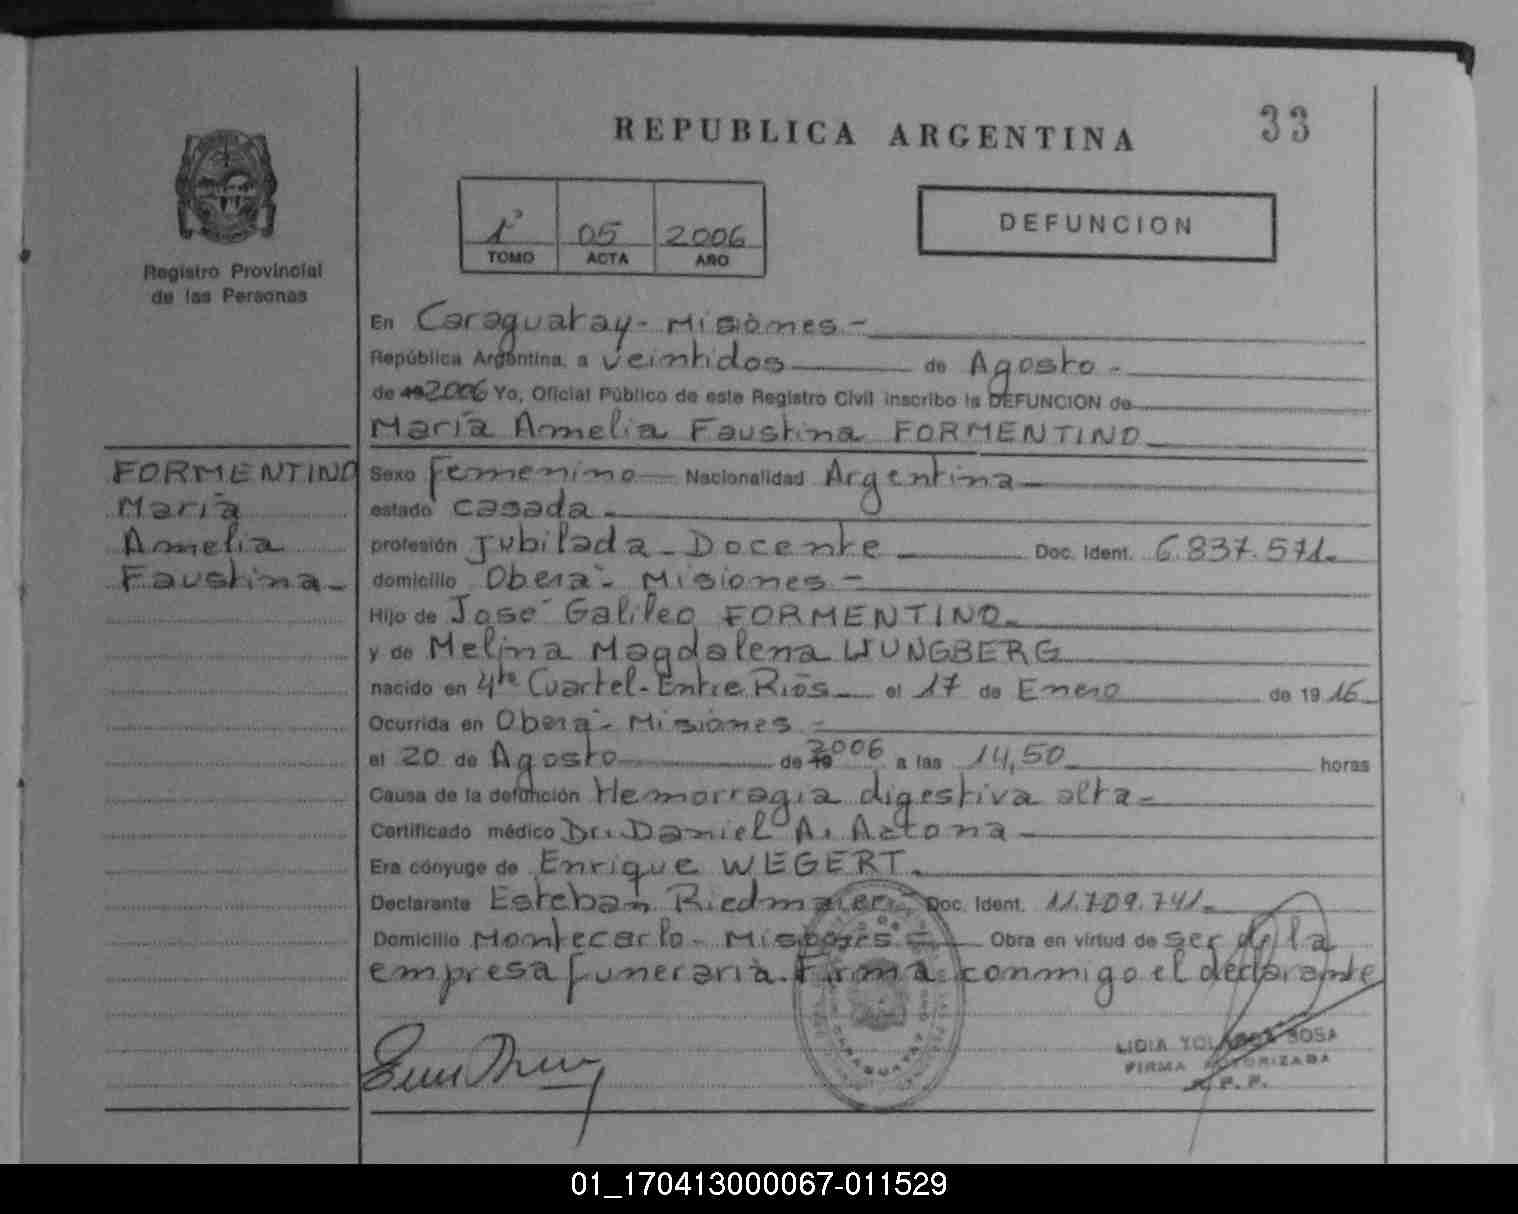 33
REPUBLICA ARGENTINA
1º 05 2006
TOMO ACTA AÑO
DEFUNCION
Registro Provincial
de las Personas
FORMENTINO
María
Amelia
Faustina-
En Caraguatay- Misiones-
República Argentina, a veintidos de Agosto-
de 19 2006 Yo, Oficial Público de este Registro Civil inscribo la DEFUNCION de
María Amelia Faustina FORMENTINO
Sexo Femenino Nacionalidad Argentina
estado casada-
profesión Jubilada-Docente Doc. Ident. 6.837.571-
domicilio Oberá- Misiones-
Hijo de José Galileo FORMENTINO-
y de Melina Magdalena WUNGBERG
nacido en 4to Cuartel-Entre Ríos el 17 de Enero de 19 16
Ocurrida en Oberá- Misiones-
el 20 de Agosto de 19 2006 a las 14,50 horas
Causa de la defunción Hemorragia digestiva alta-
Certificado médico Dr. Daniel A.
Era cónyuge de Enrique WEGERT.
Declarante Esteban Riedmaier Doc. Ident. 11.709.741-
Domicilio Montecarlo- Misiones- Obra en virtud de ser de la
empresa funeraria. Firma conmigo el declarante
LIDIA YOLANDA SOSA
FIRMA AUTORIZADA
R. P. P.
01_170413000067-011529